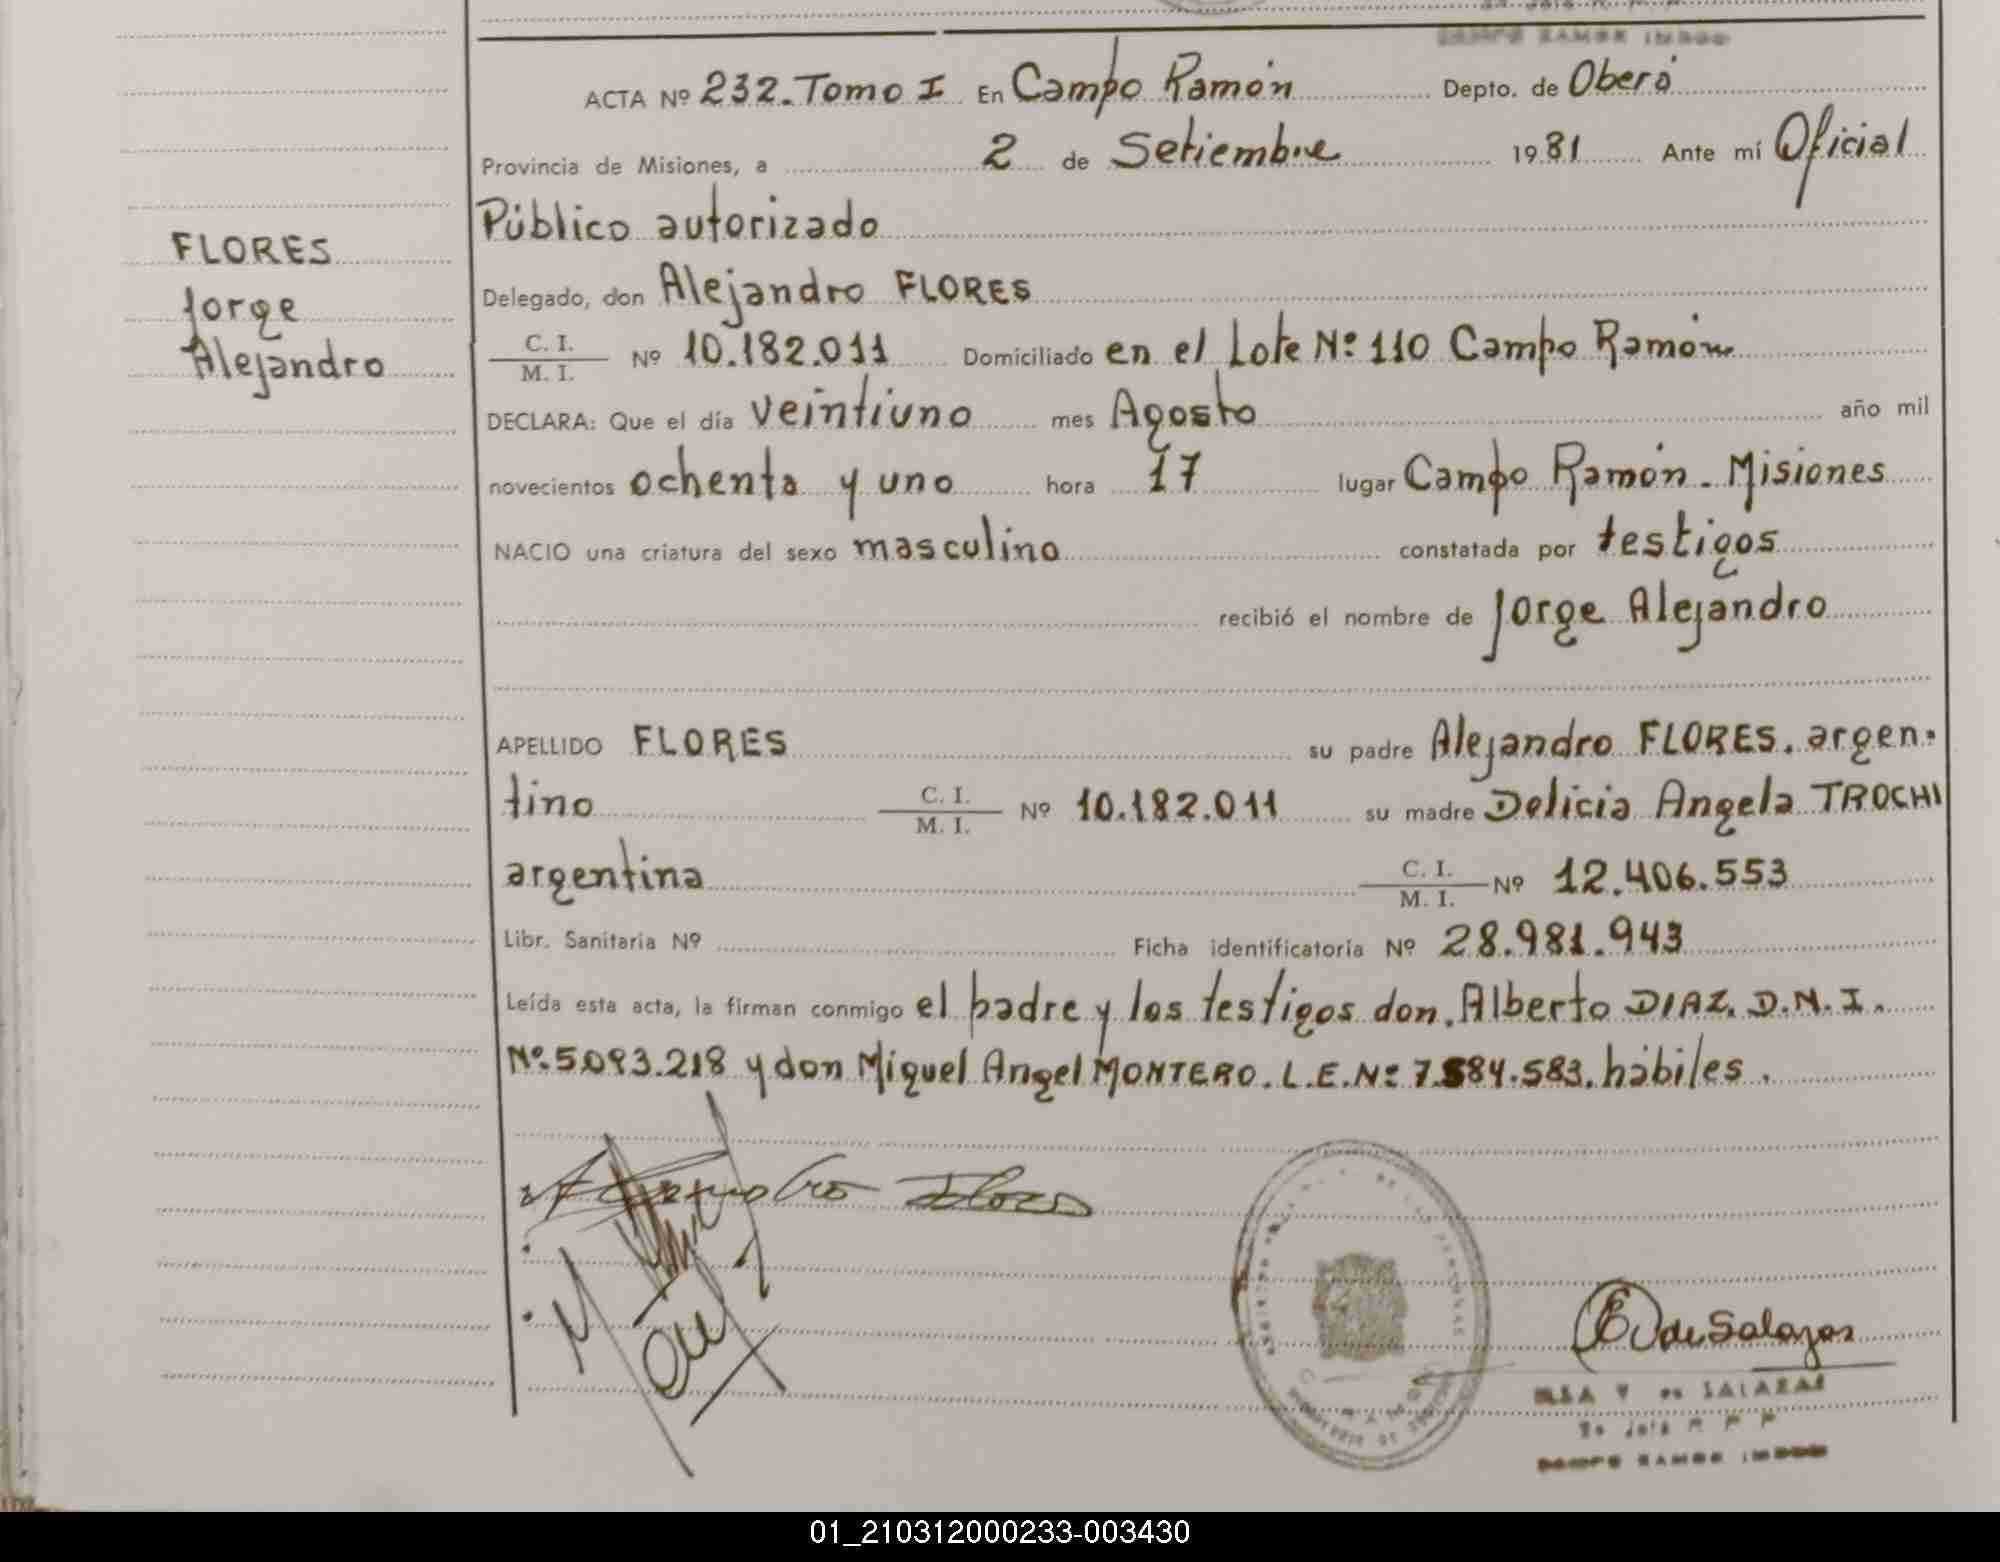 ACTA Nº 232. Tomo I En Campo Ramón Depto. de Oberá
Provincia de Misiones, a 2 de Setiembre 1981 Ante mí Oficial
Público autorizado
FLORES
Jorge
Alejandro
Delegado, don Alejandro FLORES
C. I.
M. I. Nº 10.182.011 Domiciliado en el Lote Nº 110 Campo Ramón
DECLARA: Que el día veintiuno mes Agosto año mil
novecientos ochenta y uno hora 17 lugar Campo Ramón. Misiones
NACIO una criatura del sexo masculino constatada por testigos
recibió el nombre de Jorge Alejandro
APELLIDO FLORES su padre Alejandro FLORES. argen-
tino C. I.
M. I. Nº 10.182.011 su madre Delicia Angela TROCHI
argentina C. I.
M. I. Nº 12.406.553
Libr. Sanitaria Nº Ficha identificatoria Nº 28.981.943
Leída esta acta, la firman conmigo el padre y los testigos don. Alberto DIAZ. D.N.I.
Nº. 5.093.218 y don Miguel Angel MONTERO. L.E. Nº 7.584.583. hábiles.
E V de Salazar
ELSA V de SALAZAR
01_210312000233-003430